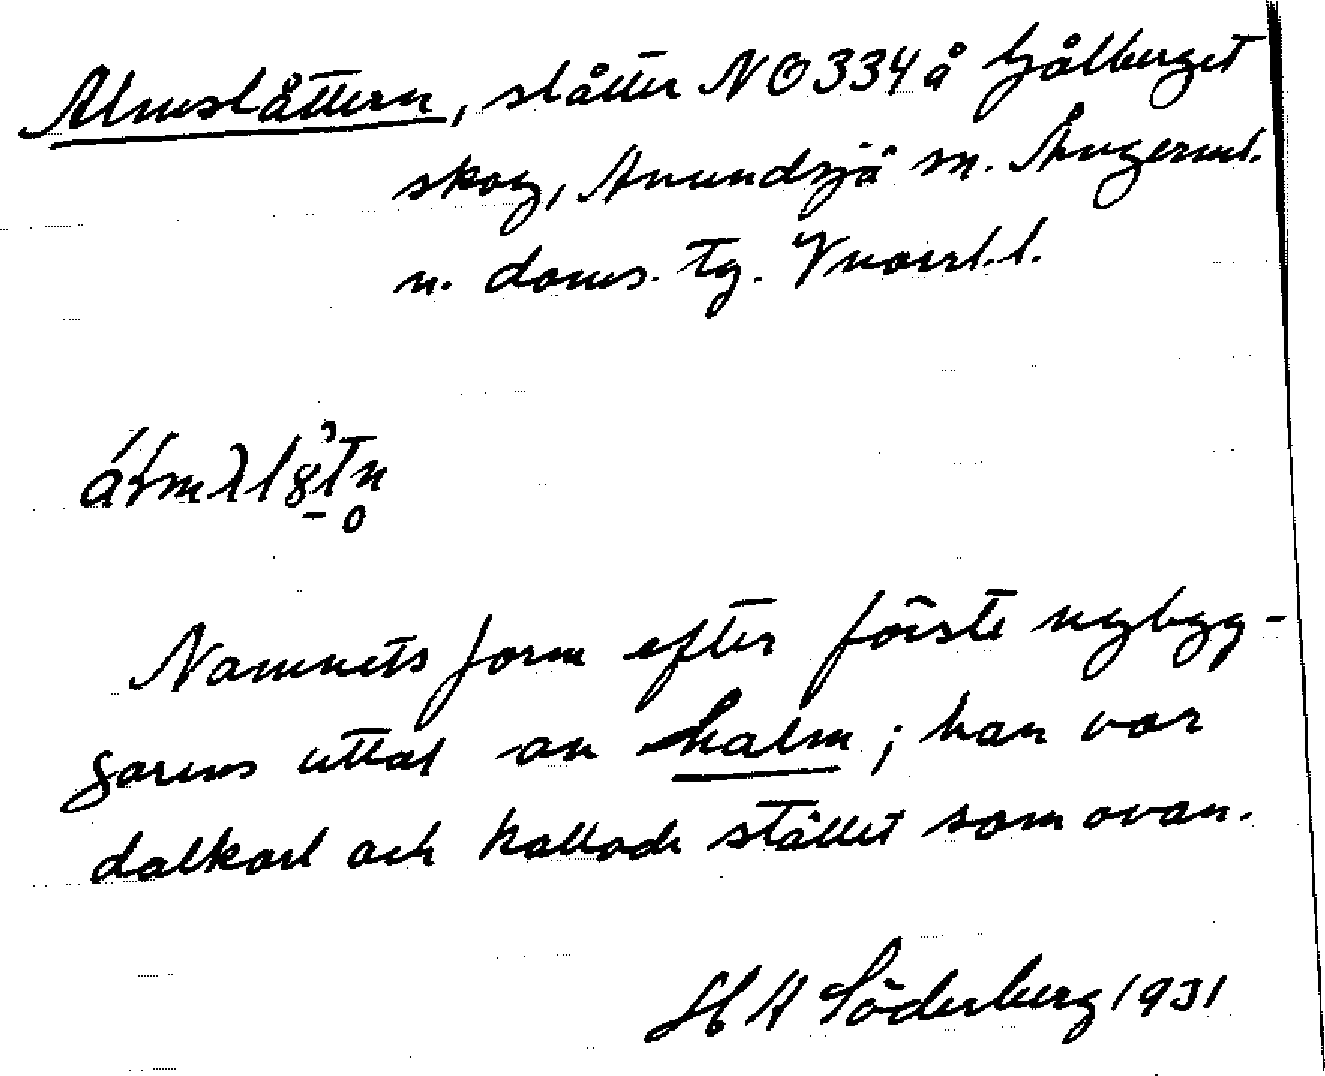 Almslåttern, slåtter NO 334 å Gålberget
skog, Anundsjö sn. Ångerml.
n. doms. tg. Vnorrl. l.
Namnets form efter förste nybyg-
garens uttal av halm; han var
dalkarl och kallade stället som ovan.
H A Söderberg 1931